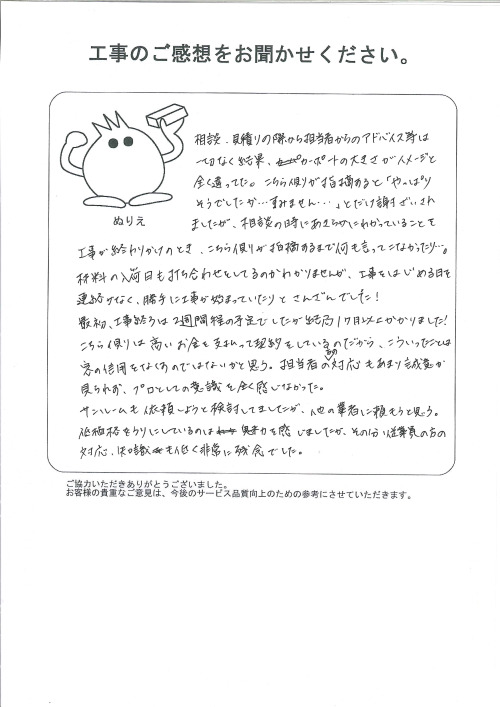 工事のご感想をお聞かせください。
ぬりえ
相談、見積りの際から担当者からのアドバイス等は
一切なく結果、カーポートの大きさがイメージと
全く違ってた。こちら側が指摘すると「やっぱり
そうでしたか…すみません…」とだけ謝ざいされ
ましたが、相談の時にあきらかにわかっていることを
工事が終わりかけのとき、こちら側が指摘するまで何も言ってこなかったり…。
材料の入荷日も打ち合わせをしてるのかわかりませんが、工事をはじめる日を
連絡がなく、勝手に工事が始まっていたりと さんざんでした！
最初、工事終了は2週間程の予定でしたが結局1ヶ月以上かかりました！
こちら側は高いお金を支払って契約をしているのだから、こういったことは
客の信用をなくすのではないかと思う。担当者の対応もあまり誠意が
見られず、プロとしての意識を全く感じなかった。
サンルームも依頼しようと検討してましたが、他の業者に頼もうと思う。
低価格をうりにしているのは魅力を感じましたが、その分従業員の方の
対応、知識も低く非常に残念でした。
ご協力いただきありがとうございました。
お客様の貴重なご意見は、今後のサービス品質向上のための参考にさせていただきます。